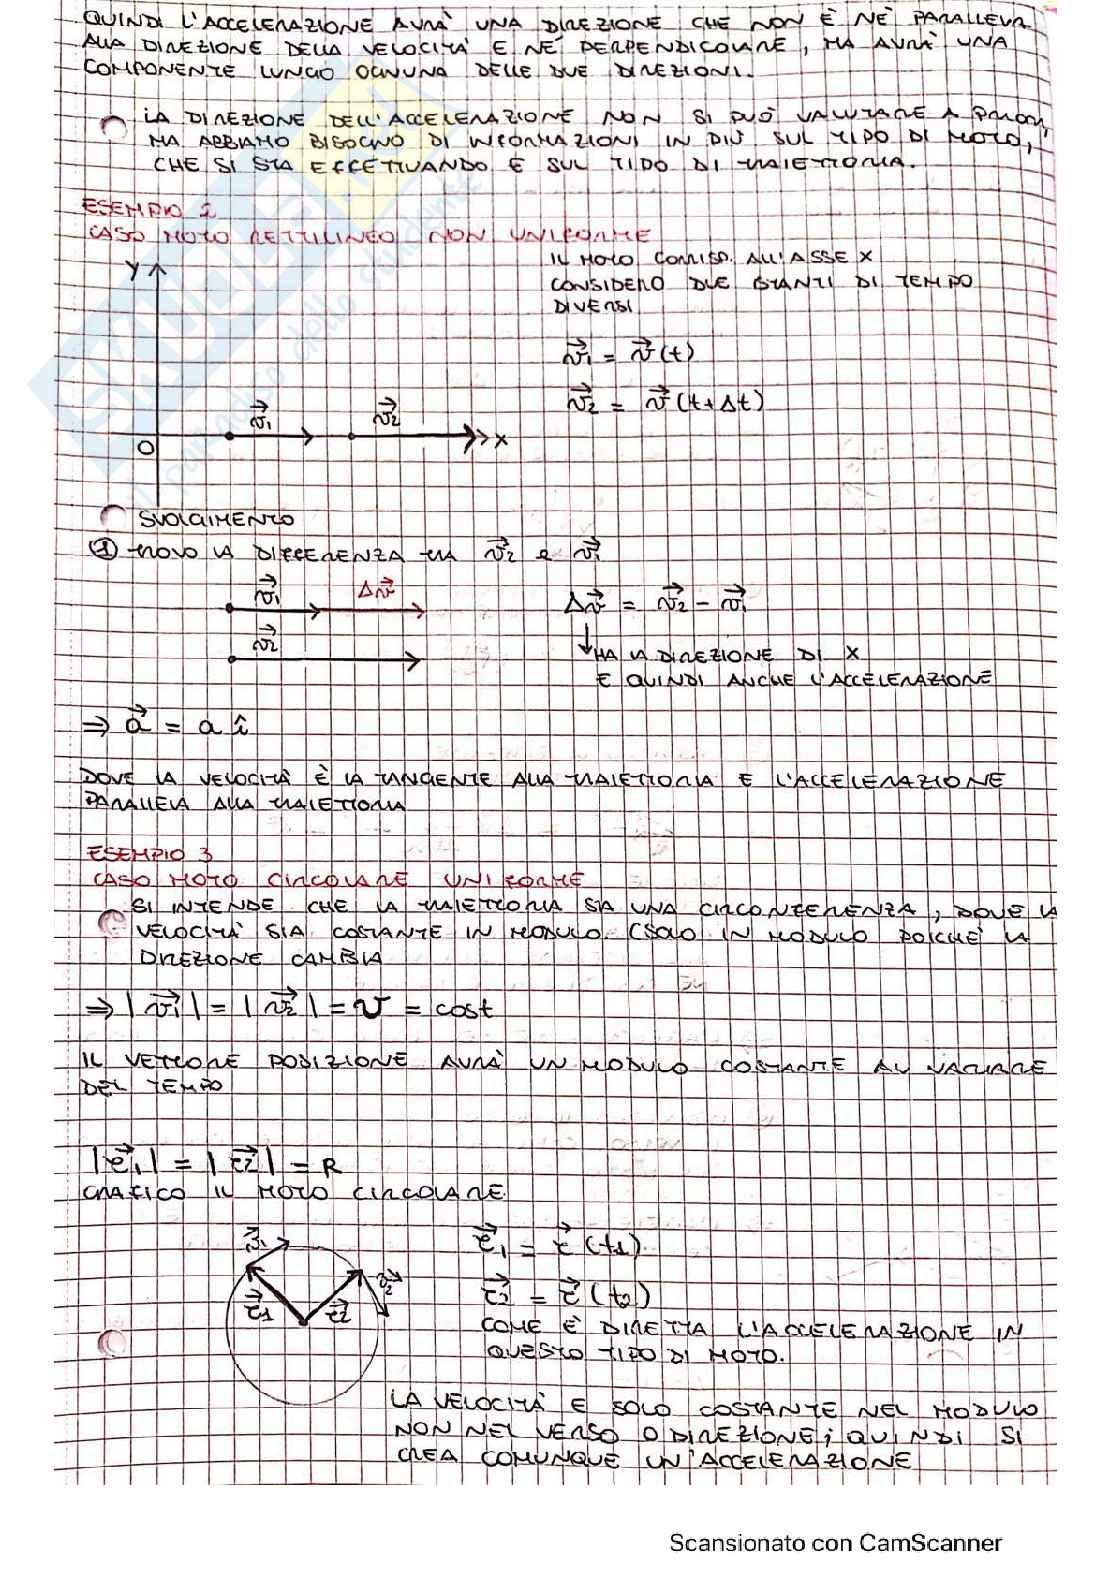 QUINDI L'ACCELERAZIONE AVRÀ UNA DIREZIONE CHE NON È NÈ PARALLELA
ALLA DIREZIONE DELLA VELOCITÀ E NÈ PERPENDICOLARE, MA AVRÀ UNA
COMPONENTE LUNGO OGNUNA DELLE DUE DIREZIONI.
LA DIREZIONE DELL'ACCELERAZIONE NON SI PUÒ VALUTARE A PRIORI,
MA ABBIAMO BISOGNO DI INFORMAZIONI IN PIÙ SUL TIPO DI MOTO,
CHE SI STA EFFETTUANDO E SUL TIPO DI TRAIETTORIA.
ESEMPIO 2
CASO MOTO RETTILINEO NON UNIFORME
IL MOTO CORRISP. ALL'ASSE X
CONSIDERO DUE ISTANTI DI TEMPO
DIVERSI
Y
v⃗1 = v⃗(t)
v⃗2 = v⃗(t+Δt)
v⃗1 v⃗2
O X
SVOLGIMENTO
① TROVO LA DIFFERENZA TRA v⃗2 e v⃗1
v⃗1 Δv⃗
Δv⃗ = v⃗2 - v⃗1
v⃗2
HA LA DIREZIONE DI X
E QUINDI ANCHE L'ACCELERAZIONE
⇒ a⃗ = a î
DOVE LA VELOCITÀ È LA TANGENTE ALLA TRAIETTORIA E L'ACCELERAZIONE
PARALLELA ALLA TRAIETTORIA
ESEMPIO 3
CASO MOTO CIRCOLARE UNIFORME
SI INTENDE CHE LA TRAIETTORIA SIA UNA CIRCONFERENZA, DOVE LA
VELOCITÀ SIA COSTANTE IN MODULO (SOLO IN MODULO POICHÈ LA
DIREZIONE CAMBIA
⇒ |v⃗1| = |v⃗2| = v = cost
IL VETTORE POSIZIONE AVRÀ UN MODULO COSTANTE AL VARIARE
DEL TEMPO
|r⃗1| = |r⃗2| = R
GRAFICO IL MOTO CIRCOLARE
v⃗1
r⃗1 = r⃗(t1)
v⃗2
r⃗1 r⃗2
r⃗2 = r⃗(t2)
COME È DIRETTA L'ACCELERAZIONE IN
QUESTO TIPO DI MOTO.
LA VELOCITÀ E SOLO COSTANTE NEL MODULO
NON NEL VERSO O DIREZIONE; QUINDI SI
CREA COMUNQUE UN'ACCELERAZIONE
Scansionato con CamScanner